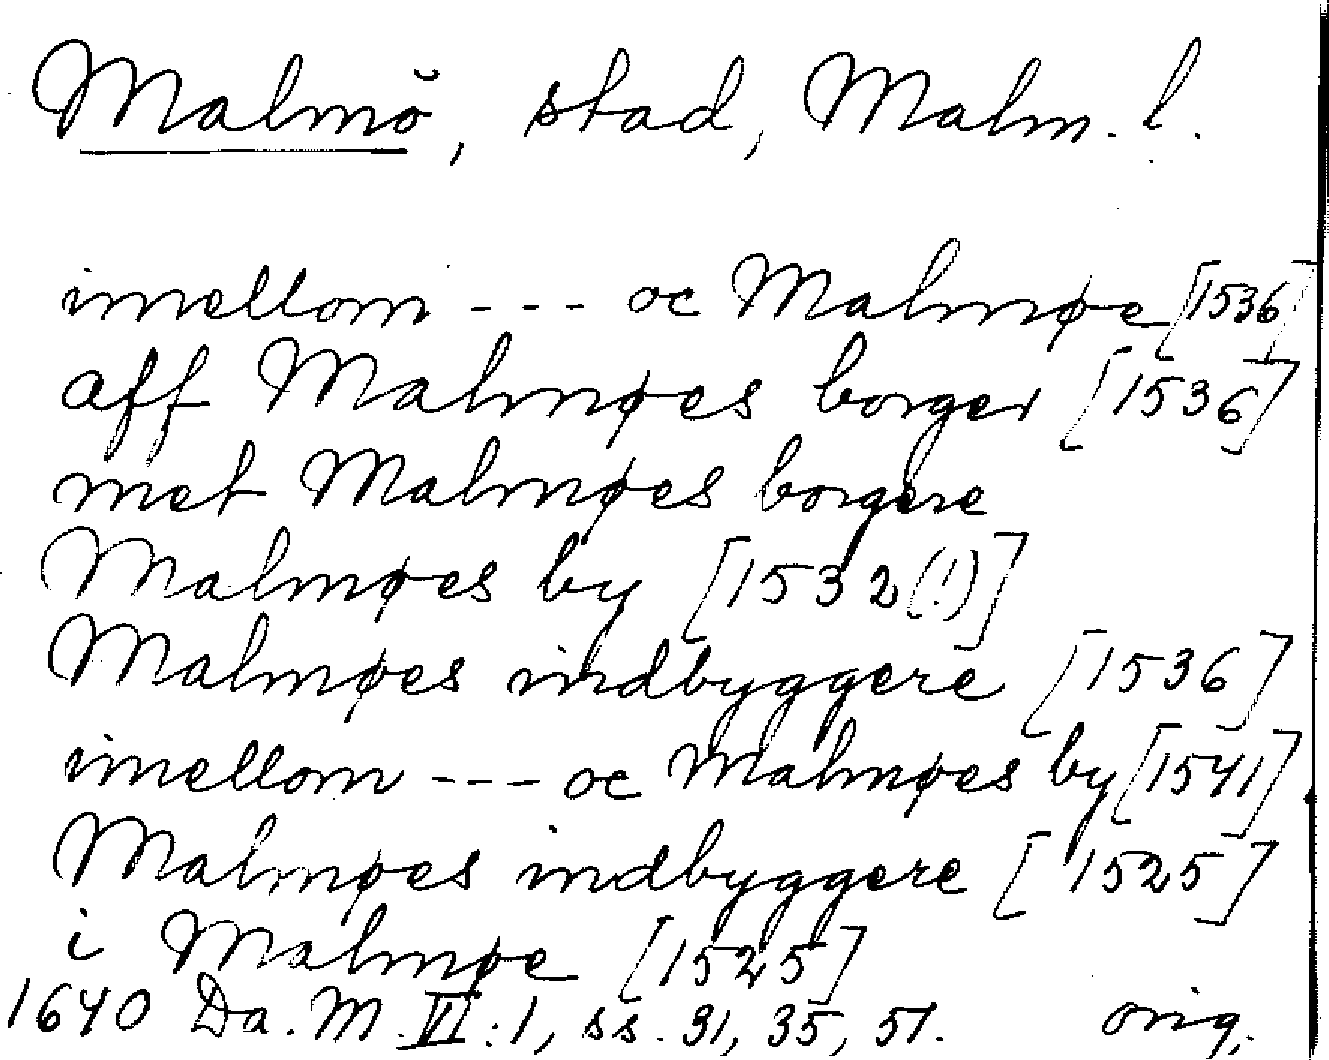 Malmö, stad, Malm. l.
imellom --- oc Malmøe [1536]
aff Malmøes borger [1536]
met Malmøes borgere
Malmøes by [1532(!)]
Malmøes indbyggere [1536]
imellom --- oc Malmøes by [1541]
Malmøes indbyggere [1525]
i Malmøe [1525]
1640 Da. M. VI:1, ss. 31, 35, 51. orig.